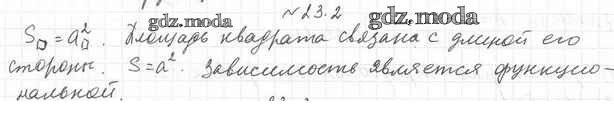 №23.2
gdz.moda gdz.moda
S□ = a²□. Площадь квадрата связана с длиной его
стороны. S=a². Зависимость является функцио-
нальной.